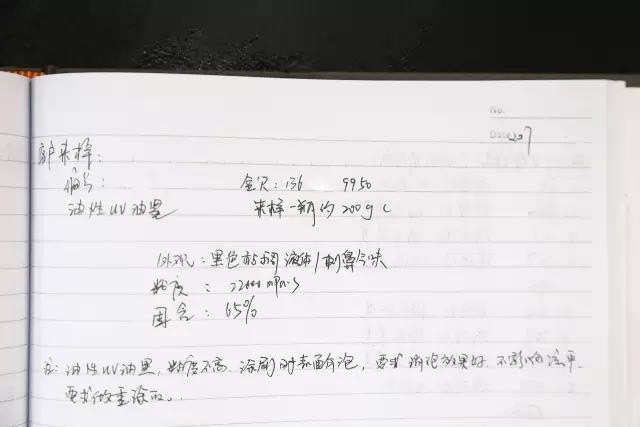 No.
Date 207
客户来样:
编号: 金尺: 136 9950
油性UV油墨 来样一瓶约200g (
外观: 黑色粘稠液体/刺鼻气味
粘度: 22000 mPa·s
固含: 65%
注: 油性UV油墨, 粘度不高, 涂刷时表面有泡, 要求消泡效果好, 不影响流平.
要求做重涂